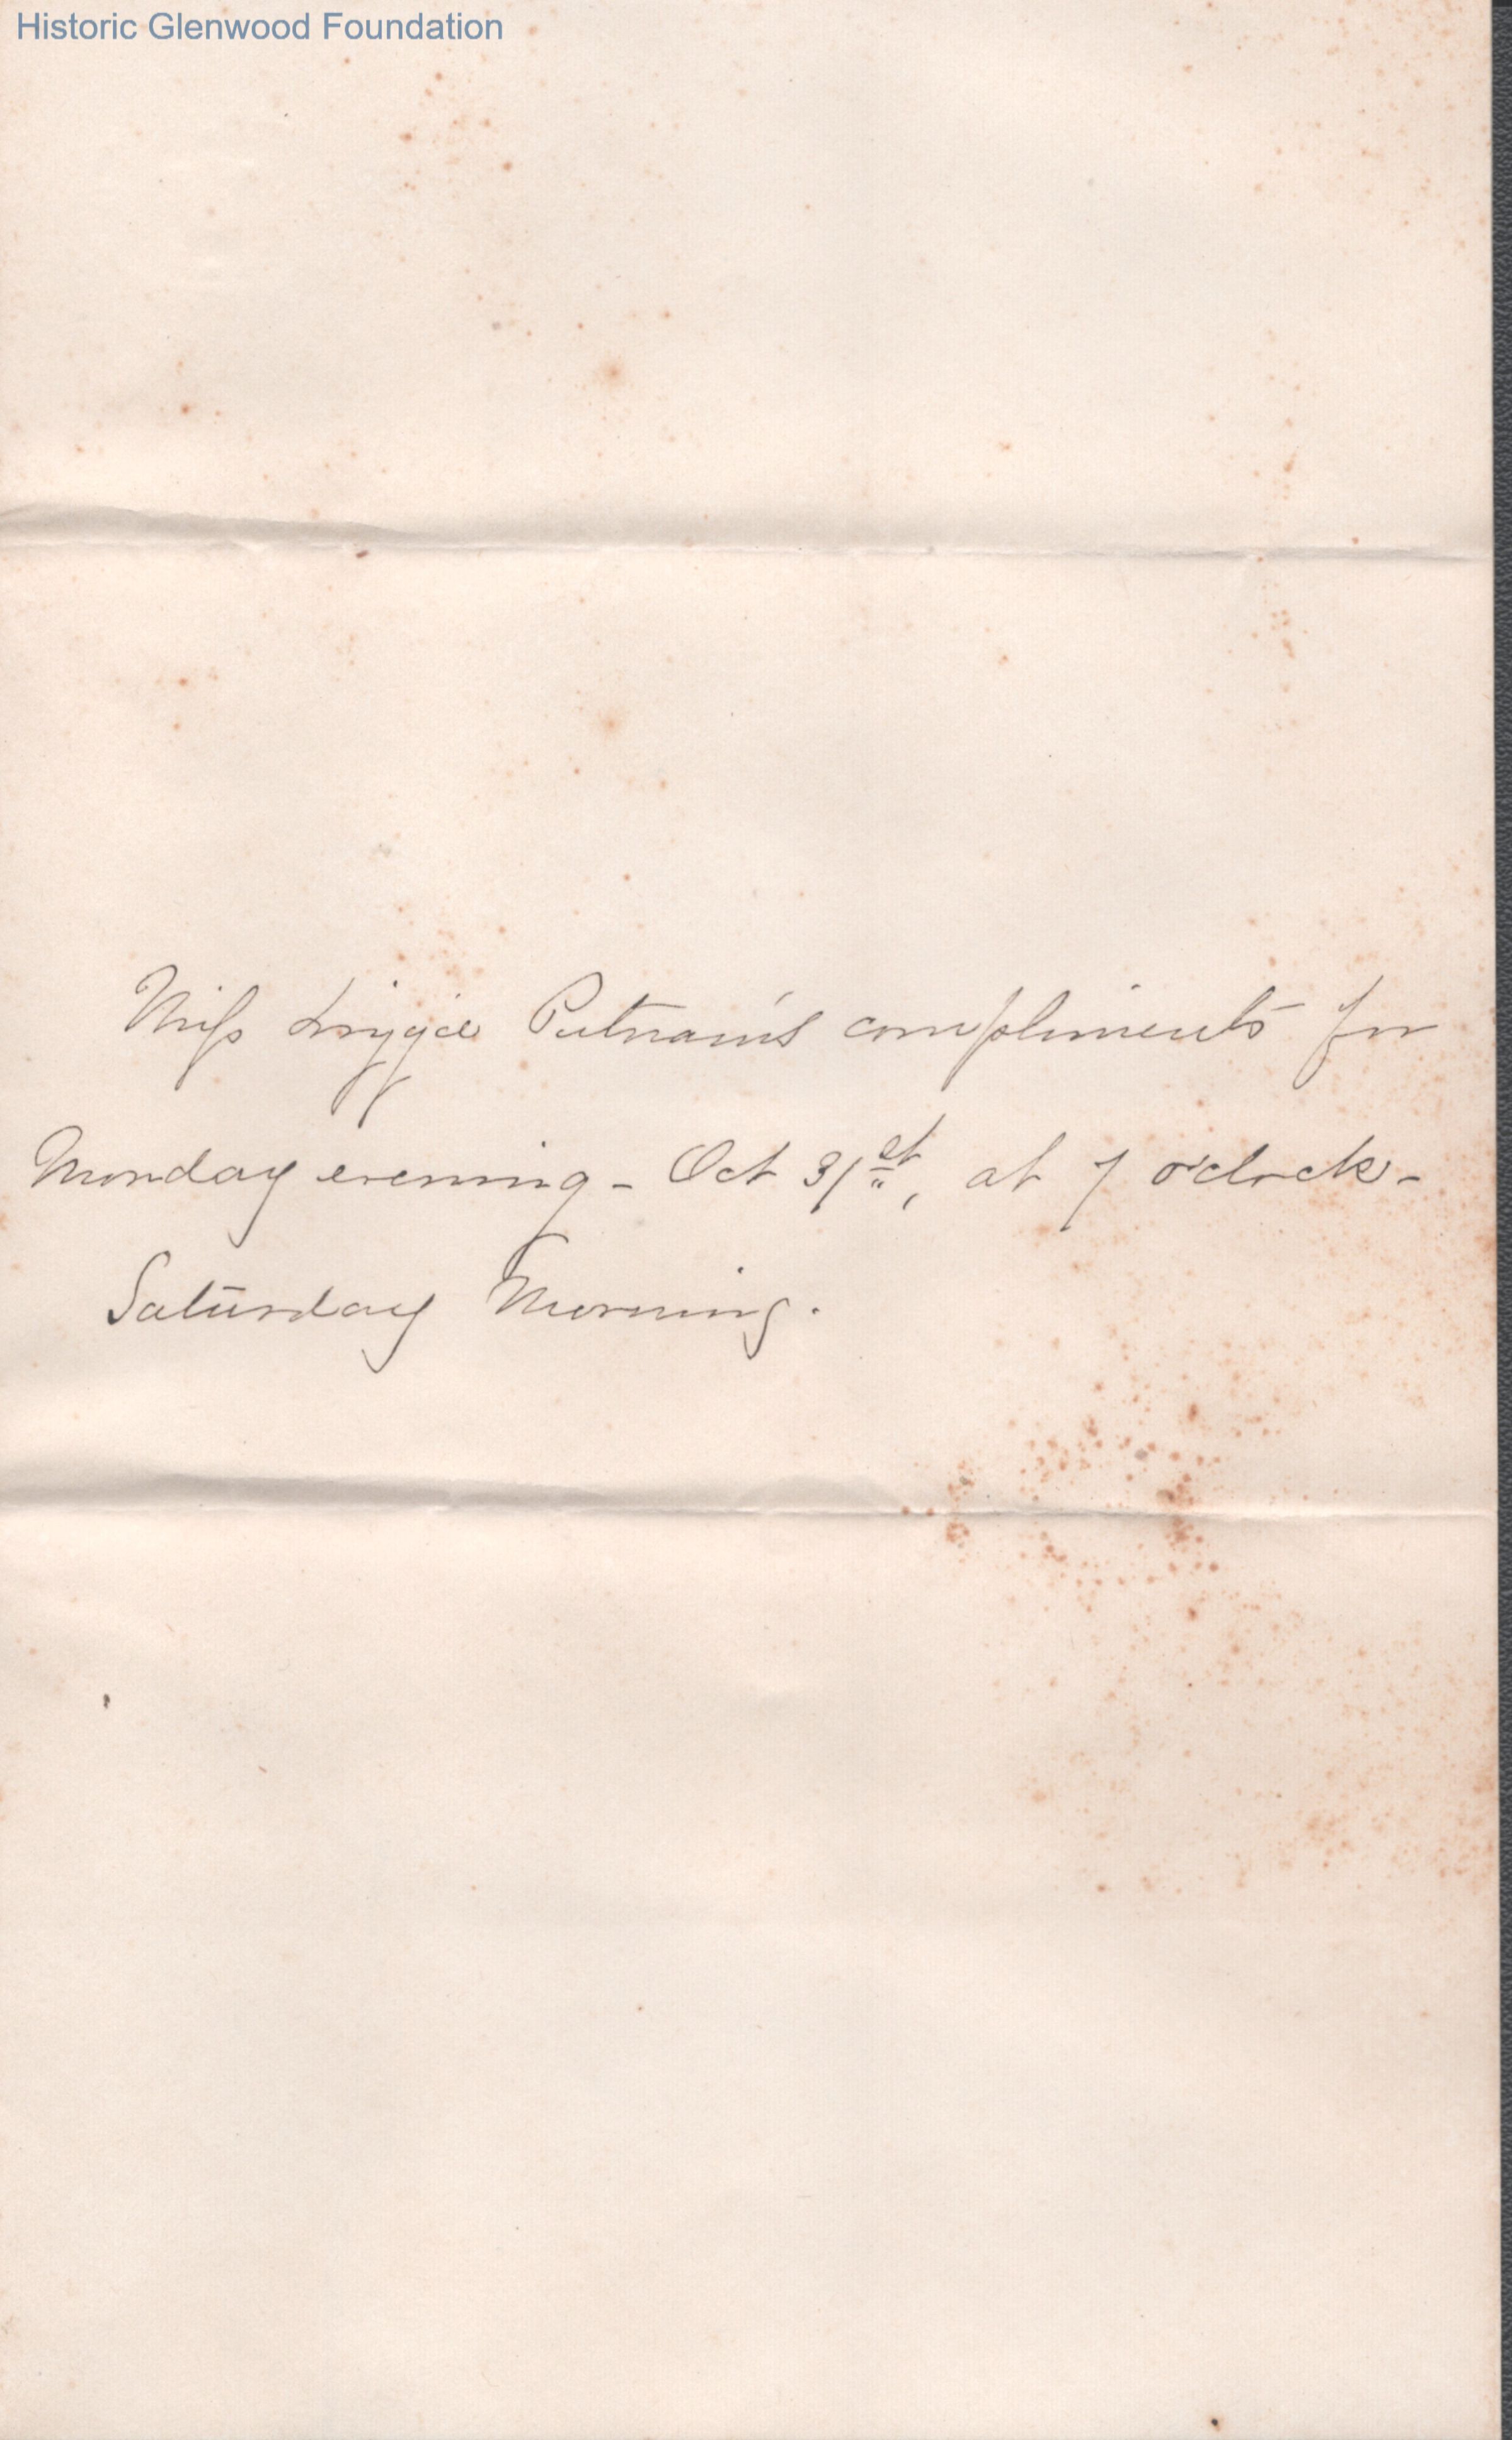 Historic Glenwood Foundation
Miss Lizzie Putnam's compliments for
Monday evening - Oct 31st, at 7 o'clock -
Saturday Morning.